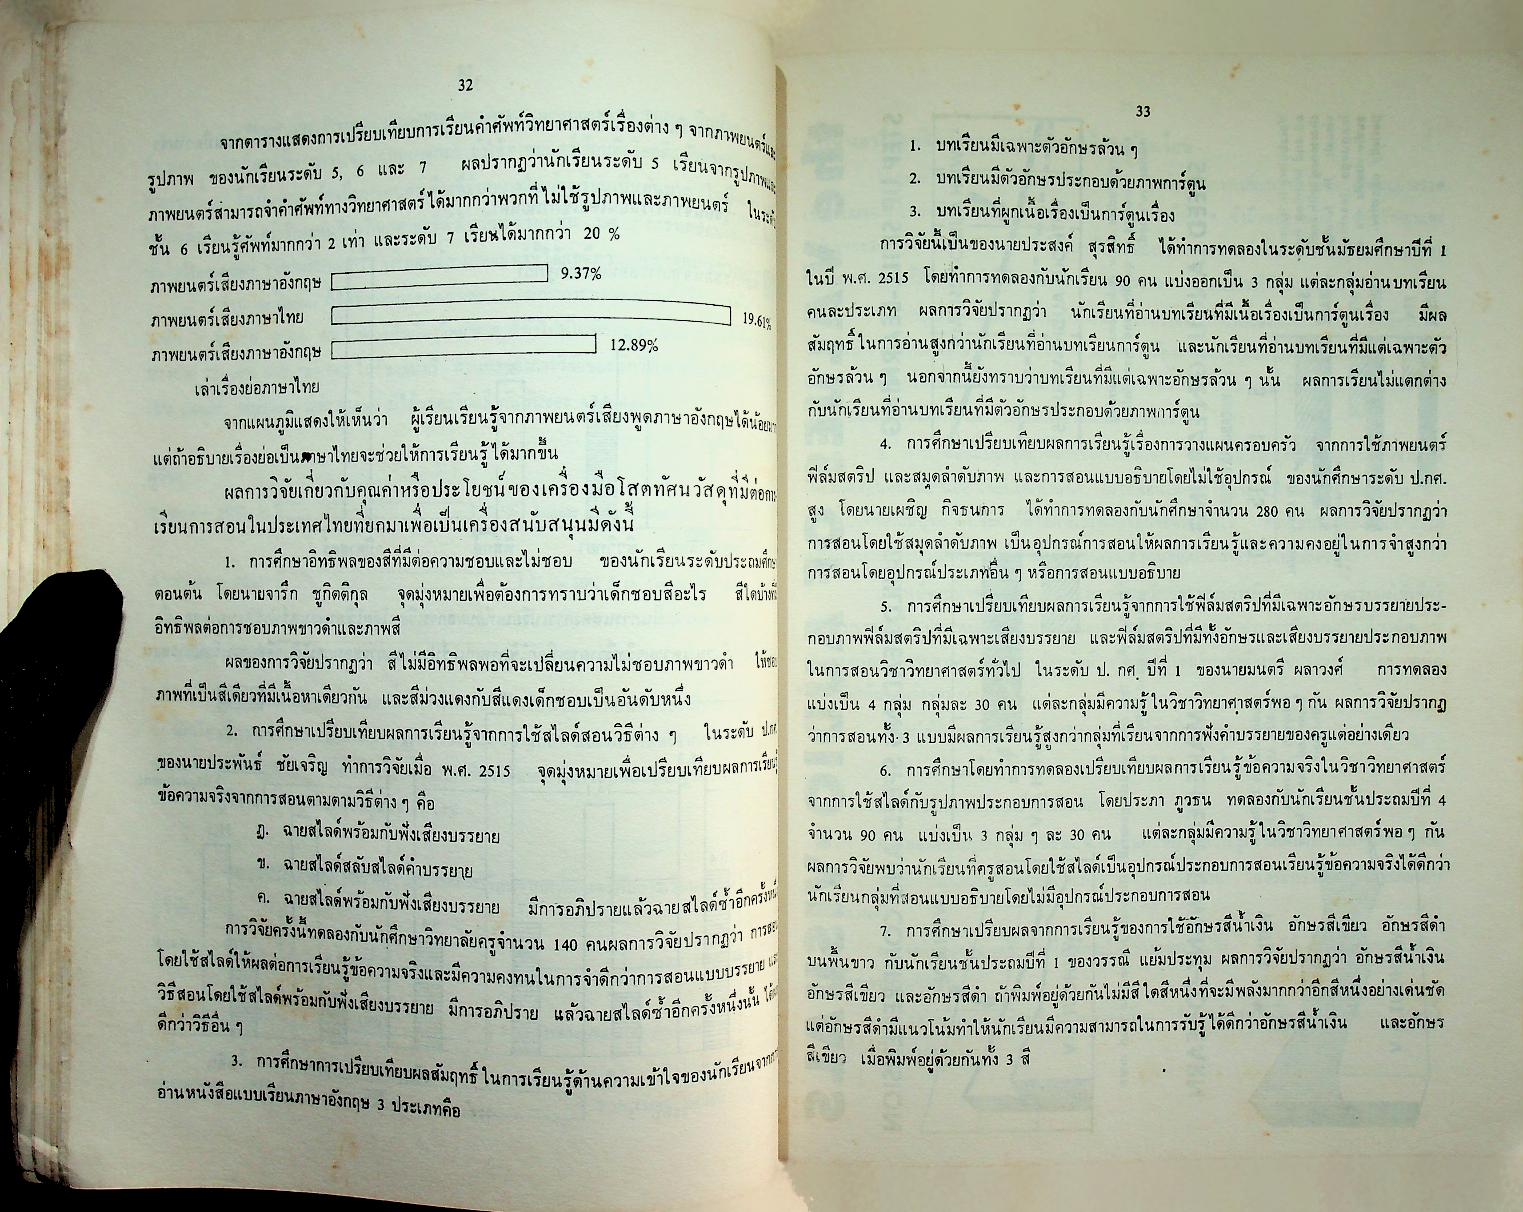 32
จากตารางแสดงการเปรียบเทียบการเรียนคำศัพท์วิทยาศาสตร์เรื่องต่าง ๆ จากภาพยนตร์และ
รูปภาพ ของนักเรียนระดับ 5, 6 และ 7 ผลปรากฏว่านักเรียนระดับ 5 เรียนจากรูปภาพและ
ภาพยนตร์สามารถจำคำศัพท์ทางวิทยาศาสตร์ได้มากกว่าพวกที่ไม่ใช้รูปภาพและภาพยนตร์ ในระดับ
ชั้น 6 เรียนรู้ศัพท์มากกว่า 2 เท่า และระดับ 7 เรียนได้มากกว่า 20 %
ภาพยนตร์เสียงภาษาอังกฤษ 9.37%
ภาพยนตร์เสียงภาษาไทย 19.61%
ภาพยนตร์เสียงภาษาอังกฤษ 12.89%
เล่าเรื่องย่อภาษาไทย
จากแผนภูมิแสดงให้เห็นว่า ผู้เรียนเรียนรู้จากภาพยนตร์เสียงพูดภาษาอังกฤษได้น้อย
แต่ถ้าอธิบายเรื่องย่อเป็นภาษาไทยจะช่วยให้การเรียนรู้ได้มากขึ้น
ผลการวิจัยเกี่ยวกับคุณค่าหรือประโยชน์ของเครื่องมือโสตทัศนวัสดุที่มีต่อการ
เรียนการสอนในประเทศไทยที่ยกมาเพื่อเป็นเครื่องสนับสนุนมีดังนี้
1. การศึกษาอิทธิพลของสีที่มีต่อความชอบและไม่ชอบ ของนักเรียนระดับประถมศึกษา
ตอนต้น โดยนายจารึก ชูกิตติกุล จุดมุ่งหมายเพื่อต้องการทราบว่าเด็กชอบสีอะไร สีใดบ้างที่มี
อิทธิพลต่อการชอบภาพขาวดำและภาพสี
ผลของการวิจัยปรากฏว่า สีไม่มีอิทธิพลพอที่จะเปลี่ยนความไม่ชอบภาพขาวดำ ให้ชอบ
ภาพที่เป็นสีเดียวที่มีเนื้อหาเดียวกัน และสีม่วงแดงกับสีแดงเด็กชอบเป็นอันดับหนึ่ง
2. การศึกษาเปรียบเทียบผลการเรียนรู้จากการใช้สไลด์สอนวิธีต่าง ๆ ในระดับ ป.กศ.
ของนายประพันธ์ ชัยเจริญ ทำการวิจัยเมื่อ พ.ศ. 2515 จุดมุ่งหมายเพื่อเปรียบเทียบผลการเรียนรู้
ข้อความจริงจากการสอนตามตามวิธีต่าง ๆ คือ
ฎ. ฉายสไลด์พร้อมกับฟังเสียงบรรยาย
ข. ฉายสไลด์สลับสไลด์คำบรรยาย
ค. ฉายสไลด์พร้อมกับฟังเสียงบรรยาย มีการอภิปรายแล้วฉายสไลด์ซ้ำอีกครั้งหนึ่ง
การวิจัยครั้งนี้ทดลองกับนักศึกษาวิทยาลัยครูจำนวน 140 คนผลการวิจัยปรากฏว่า การสอน
โดยใช้สไลด์ให้ผลต่อการเรียนรู้ข้อความจริงและมีความคงทนในการจำดีกว่าการสอนแบบบรรยาย และ
วิธีสอนโดยใช้สไลด์พร้อมกับฟังเสียงบรรยาย มีการอภิปราย แล้วฉายสไลด์ซ้ำอีกครั้งหนึ่งนั้น
ดีกว่าวิธีอื่น ๆ
3. การศึกษาการเปรียบเทียบผลสัมฤทธิ์ในการเรียนรู้ด้านความเข้าใจของนักเรียนจากการ
อ่านหนังสือแบบเรียนภาษาอังกฤษ 3 ประเภทคือ
33
1. บทเรียนมีเฉพาะตัวอักษรล้วน ๆ
2. บทเรียนมีตัวอักษรประกอบด้วยภาพการ์ตูน
3. บทเรียนที่ผูกเนื้อเรื่องเป็นการ์ตูนเรื่อง
การวิจัยนี้เป็นของนายประสงค์ สุรสิทธิ์ ได้ทำการทดลองในระดับชั้นมัธยมศึกษาปีที่ 1
ในปี พ.ศ. 2515 โดยทำการทดลองกับนักเรียน 90 คน แบ่งออกเป็น 3 กลุ่ม แต่ละกลุ่มอ่านบทเรียน
คนละประเภท ผลการวิจัยปรากฏว่า นักเรียนที่อ่านบทเรียนที่มีเนื้อเรื่องเป็นการ์ตูนเรื่อง มีผล
สัมฤทธิ์ในการอ่านสูงกว่านักเรียนที่อ่านบทเรียนการ์ตูน และนักเรียนที่อ่านบทเรียนที่มีแต่เฉพาะตัว
อักษรล้วน ๆ นอกจากนี้ยังทราบว่าบทเรียนที่มีแต่เฉพาะอักษรล้วน ๆ นั้น ผลการเรียนไม่แตกต่าง
กับนักเรียนที่อ่านบทเรียนที่มีตัวอักษรประกอบด้วยภาพการ์ตูน
4. การศึกษาเปรียบเทียบผลการเรียนรู้เรื่องการวางแผนครอบครัว จากการใช้ภาพยนตร์
ฟิล์มสตริป และสมุดลำดับภาพ และการสอนแบบอธิบายโดยไม่ใช้อุปกรณ์ ของนักศึกษาระดับ ป.กศ.
สูง โดยนายเผชิญ กิจธนการ ได้ทำการทดลองกับนักศึกษาจำนวน 280 คน ผลการวิจัยปรากฏว่า
การสอนโดยใช้สมุดลำดับภาพ เป็นอุปกรณ์การสอนให้ผลการเรียนรู้และความคงอยู่ในการจำสูงกว่า
การสอนโดยอุปกรณ์ประเภทอื่น ๆ หรือการสอนแบบอธิบาย
5. การศึกษาเปรียบเทียบผลการเรียนรู้จากการใช้ฟิล์มสตริปที่มีเฉพาะอักษรบรรยายประ-
กอบภาพฟิล์มสตริปที่มีเฉพาะเสียงบรรยาย และฟิล์มสตริปที่มีทั้งอักษรและเสียงบรรยายประกอบภาพ
ในการสอนวิชาวิทยาศาสตร์ทั่วไป ในระดับ ป. กศ. ปีที่ 1 ของนายมนตรี ผลาวงศ์ การทดลอง
แบ่งเป็น 4 กลุ่ม กลุ่มละ 30 คน แต่ละกลุ่มมีความรู้ในวิชาวิทยาศาสตร์พอ ๆ กัน ผลการวิจัยปรากฏ
ว่าการสอนทั้ง 3 แบบมีผลการเรียนรู้สูงกว่ากลุ่มที่เรียนจากการฟังคำบรรยายของครูแต่อย่างเดียว
6. การศึกษาโดยทำการทดลองเปรียบเทียบผลการเรียนรู้ข้อความจริงในวิชาวิทยาศาสตร์
จากการใช้สไลด์กับรูปภาพประกอบการสอน โดยประภา ภูวธน ทดลองกับนักเรียนชั้นประถมปีที่ 4
จำนวน 90 คน แบ่งเป็น 3 กลุ่ม ๆ ละ 30 คน แต่ละกลุ่มมีความรู้ในวิชาวิทยาศาสตร์พอ ๆ กัน
ผลการวิจัยพบว่านักเรียนที่ครูสอนโดยใช้สไลด์เป็นอุปกรณ์ประกอบการสอนเรียนรู้ข้อความจริงได้ดีกว่า
นักเรียนกลุ่มที่สอนแบบอธิบายโดยไม่มีอุปกรณ์ประกอบการสอน
7. การศึกษาเปรียบผลจากการเรียนรู้ของการใช้อักษรสีน้ำเงิน อักษรสีเขียว อักษรสีดำ
บนพื้นขาว กับนักเรียนชั้นประถมปีที่ 1 ของวรรณี แย้มประทุม ผลการวิจัยปรากฏว่า อักษรสีน้ำเงิน
อักษรสีเขียว และอักษรสีดำ ถ้าพิมพ์อยู่ด้วยกันไม่มีสีใดสีหนึ่งที่จะมีพลังมากกว่าอีกสีหนึ่งอย่างเด่นชัด
แต่อักษรสีดำมีแนวโน้มทำให้นักเรียนมีความสามารถในการรับรู้ได้ดีกว่าอักษรสีน้ำเงิน และอักษร
สีเขียว เมื่อพิมพ์อยู่ด้วยกันทั้ง 3 สี